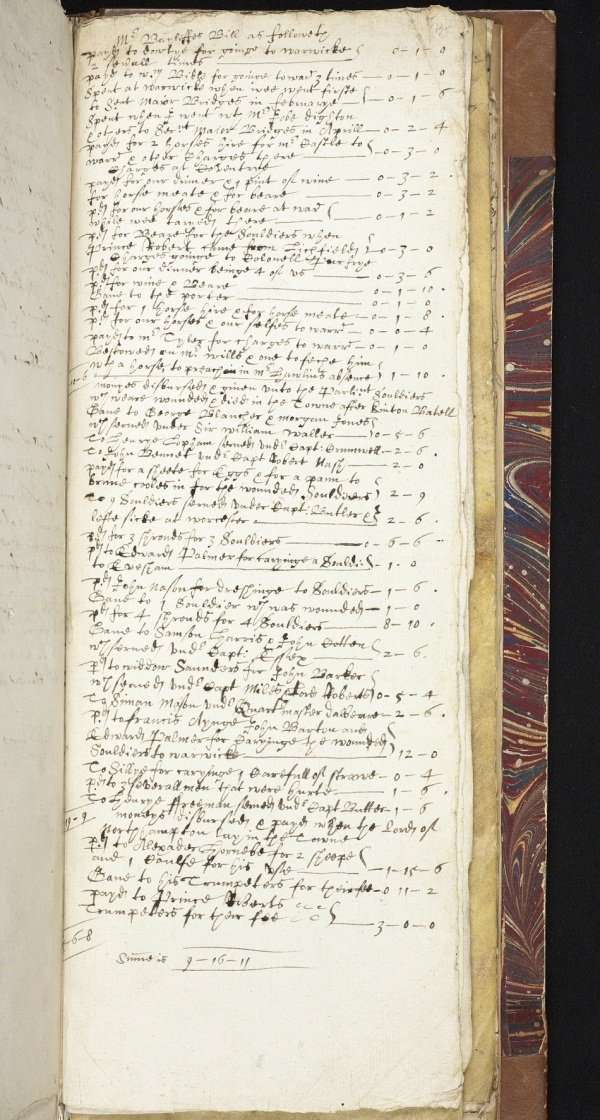 195
Mr Bayliffes Bill as followeth
payd to Sowtye for goinge to warwicke 0-1-0
2 severall times
payd to Wm Bibb for goinge toward 3 times — 0-1-0
Spent at warwicke when wee went firste
to Seat Maior Bridges in februarye — 0-1-6
Spent when I went wt Mr Tobe dighton
& others to Seriat Maior Bridges in Aprill — 0-2-4
payd for 2 horses hire for mr Castle to
warr & other Charges there — 0-3-0
Charges at Coventrie
payd for our dinner & 1 pint of wine — 0-3-2
for horse meate & for beare — 0-3-2
pd for our horses & for beare at warr
while wee taried there — 0-1-2
pd for Beare for the Souldiers when
Prince Robert came from Lichfield — 0-3-0
Charges goinge to Colonell Purfrye
pd for our dinner beinge 4 of us — 0-3-6
pd for wine & Beare — 0-1-10
Gave to the porter — 0-1-0
pd for 1 horse hire & for horse meate — 0-1-8
pd for our horses & our selfes to warr — 0-0-4
payd to mr Tyler for charges to warr — 0-1-0
Bestowed on mr wills & one to feche him
wth a horse, to preach in mr Rawlins absence 1-10
moneys disbursed & given unto the Parlint Souldiers
wch weare wounded & died in the Towne after Kinton Batell
Gave to George Blancher & morgan Jones
wch served under Sir william waller — 0-5-6
To Henrye Topham served undr Capt: Cromwell — 2-6
To John Bennet undr Capt Robert Nash — 2-0
payd for a sheete for Eggs & for a pann to
brine cooles in for the wounded Souldiers 2-9
To 9 Souldiers served under Capt: Butler &
lefte sicke at worcester — 2-6
pd for 3 shrouds for 3 Souldiers — 0-6-6
pd to Edward Palmer for caryinge a Souldir
to Evesham — 1-0
pd John Nason for dreshinge to Souldiers — 1-6
Gave to 1 Souldier wch was wounded — 1-0
pd for 4 shrouds for 4 Souldiers — 8-10
Gave to Samson Harris & John Cotten
wch served undr Capt: Essex — 2-6
pd to widdow Saunders for John Barker
wch served undr Capt Miles & Lord Roberts 0-5-4
To Siman Mason undr Quartr master — 2-6
pd to francis Aynge John Barton and
Edward Palmer for Caryinge the wounded
Souldiers to warwicke — 12-0
To Sillye for caryinge 1 Cartefull of strawe — 0-4
pd to 3 severall men that were hurte — 1-6
To Henrye ffreeman served undr Capt Butler 1-6
moneys disbursed & payd when the Lord of
Northhampton lay in the Towne
pd to Alexader Hornebe for 2 sheepe
and 1 Caulfe for his use — 1-15-6
Gave to his Trumpeters for their fee — 0 11-2
payd to Prince Roberts
Trumpeters for their fee — 3-0-0
6-8
Summe is 9-16-11